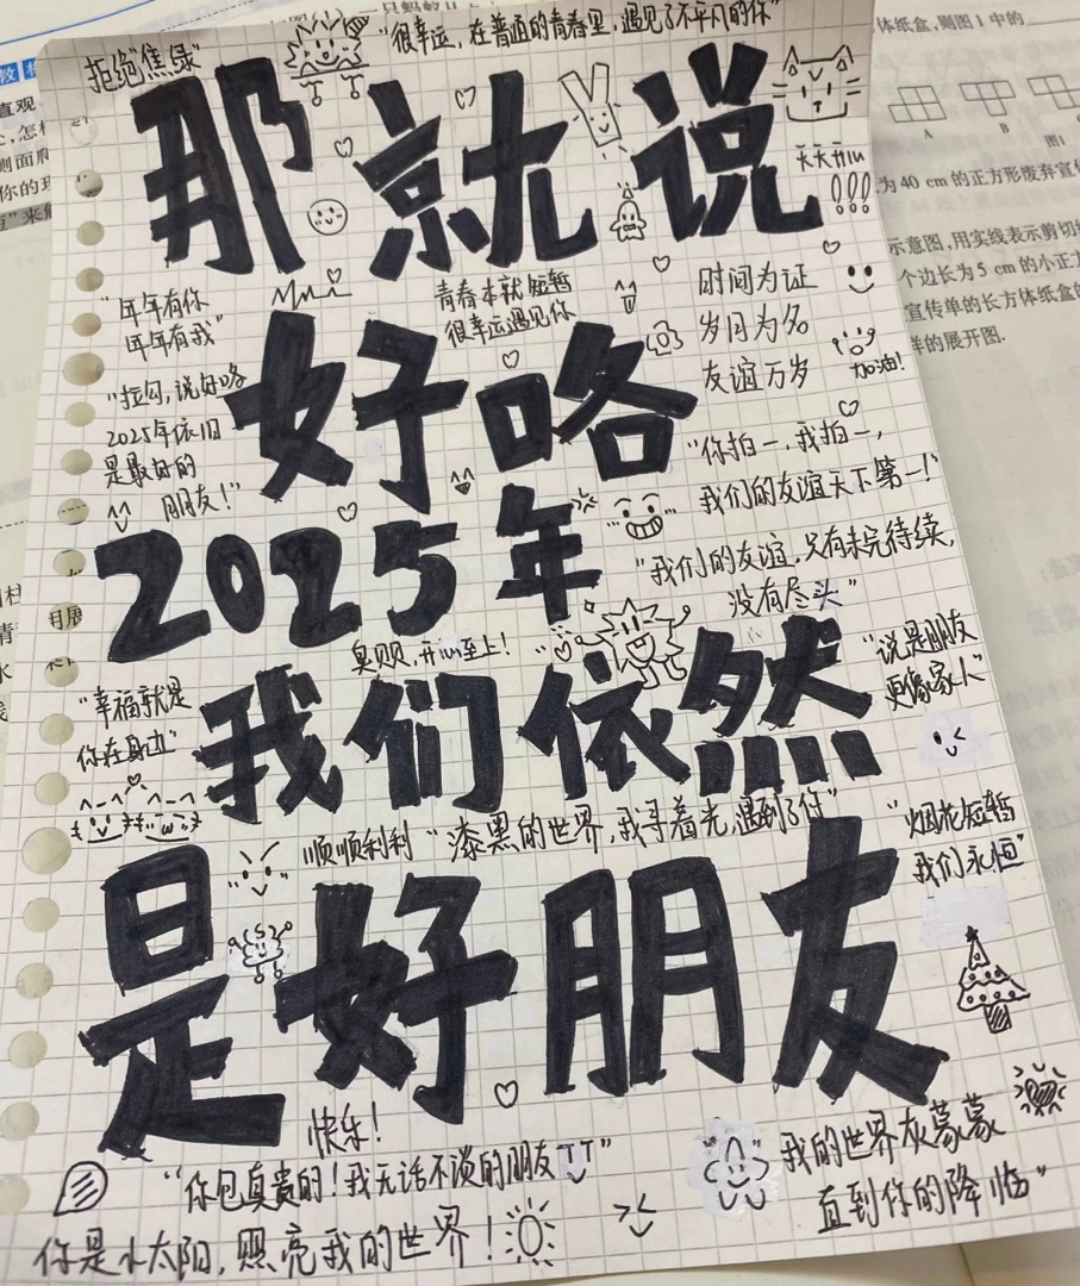 "很幸运,在普通的青春里,遇见了不平凡的你"
拒绝"焦绿"
那就说
天天开iu
!!!
"年年有你
年年有我"
青春本就短暂
很幸运遇见你
时间为证
岁月为名
友谊万岁
加油!
好咯
"拉勾,说好咯
2025年依旧
是最好的
朋友!"
"你拍一,我拍一,
我们的友谊天下第一!"
2025年
"我们的友谊,只有未完待续,
没有尽头"
臭贝贝,开iu至上!
"说是朋友
更像家人"
"幸福就是
你在身边"
我们依然
顺顺利利
"漆黑的世界,我寻着光,遇到了你"
"烟花短暂
我们永恒"
是好朋友
快乐!
"你包真贵的!我无话不谈的朋友"
我的世界灰蒙蒙
直到你的降临"
你是小太阳,照亮我的世界!
体纸盒,则图1中的
A
B
图1
为40 cm的正方形废弃宣传
示意图,用实线表示剪切线
个边长为5 cm的小正方
宣传单的长方体纸盒的
样的展开图.
教
直观
,怎样
侧面爬
你的理